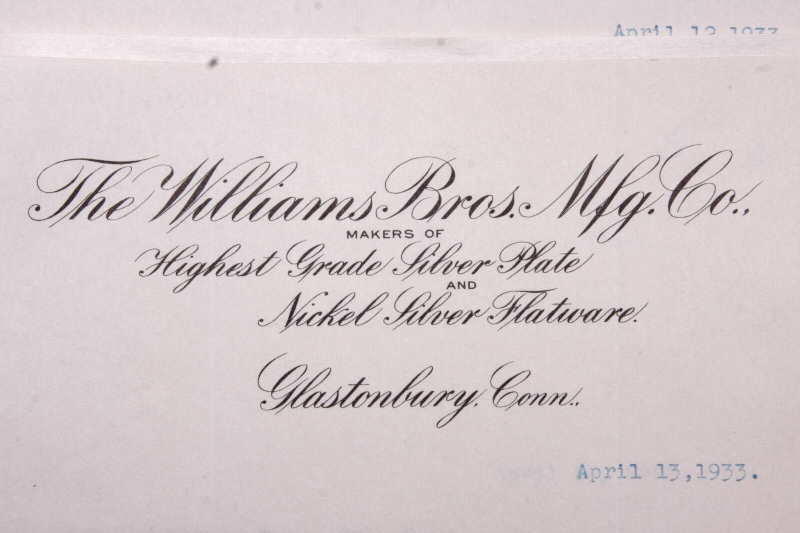 April 12 1933
The Williams Bros. Mfg. Co.,
MAKERS OF
Highest Grade Silver Plate
AND
Nickel Silver Flatware.
Glastonbury, Conn.,
April 13,1933.